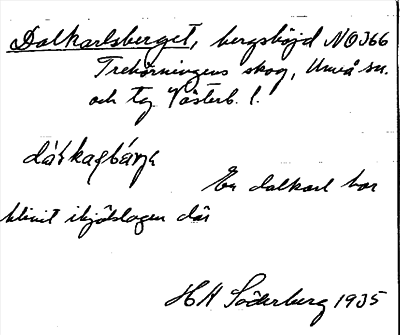 Dalkarlsberget, bergshöjd NO J66
Trehörningens skog, Umeå sn.
och tg Västerb. l.
En dalkarl har
blivit ihjälslagen där
HH Söderberg 1935